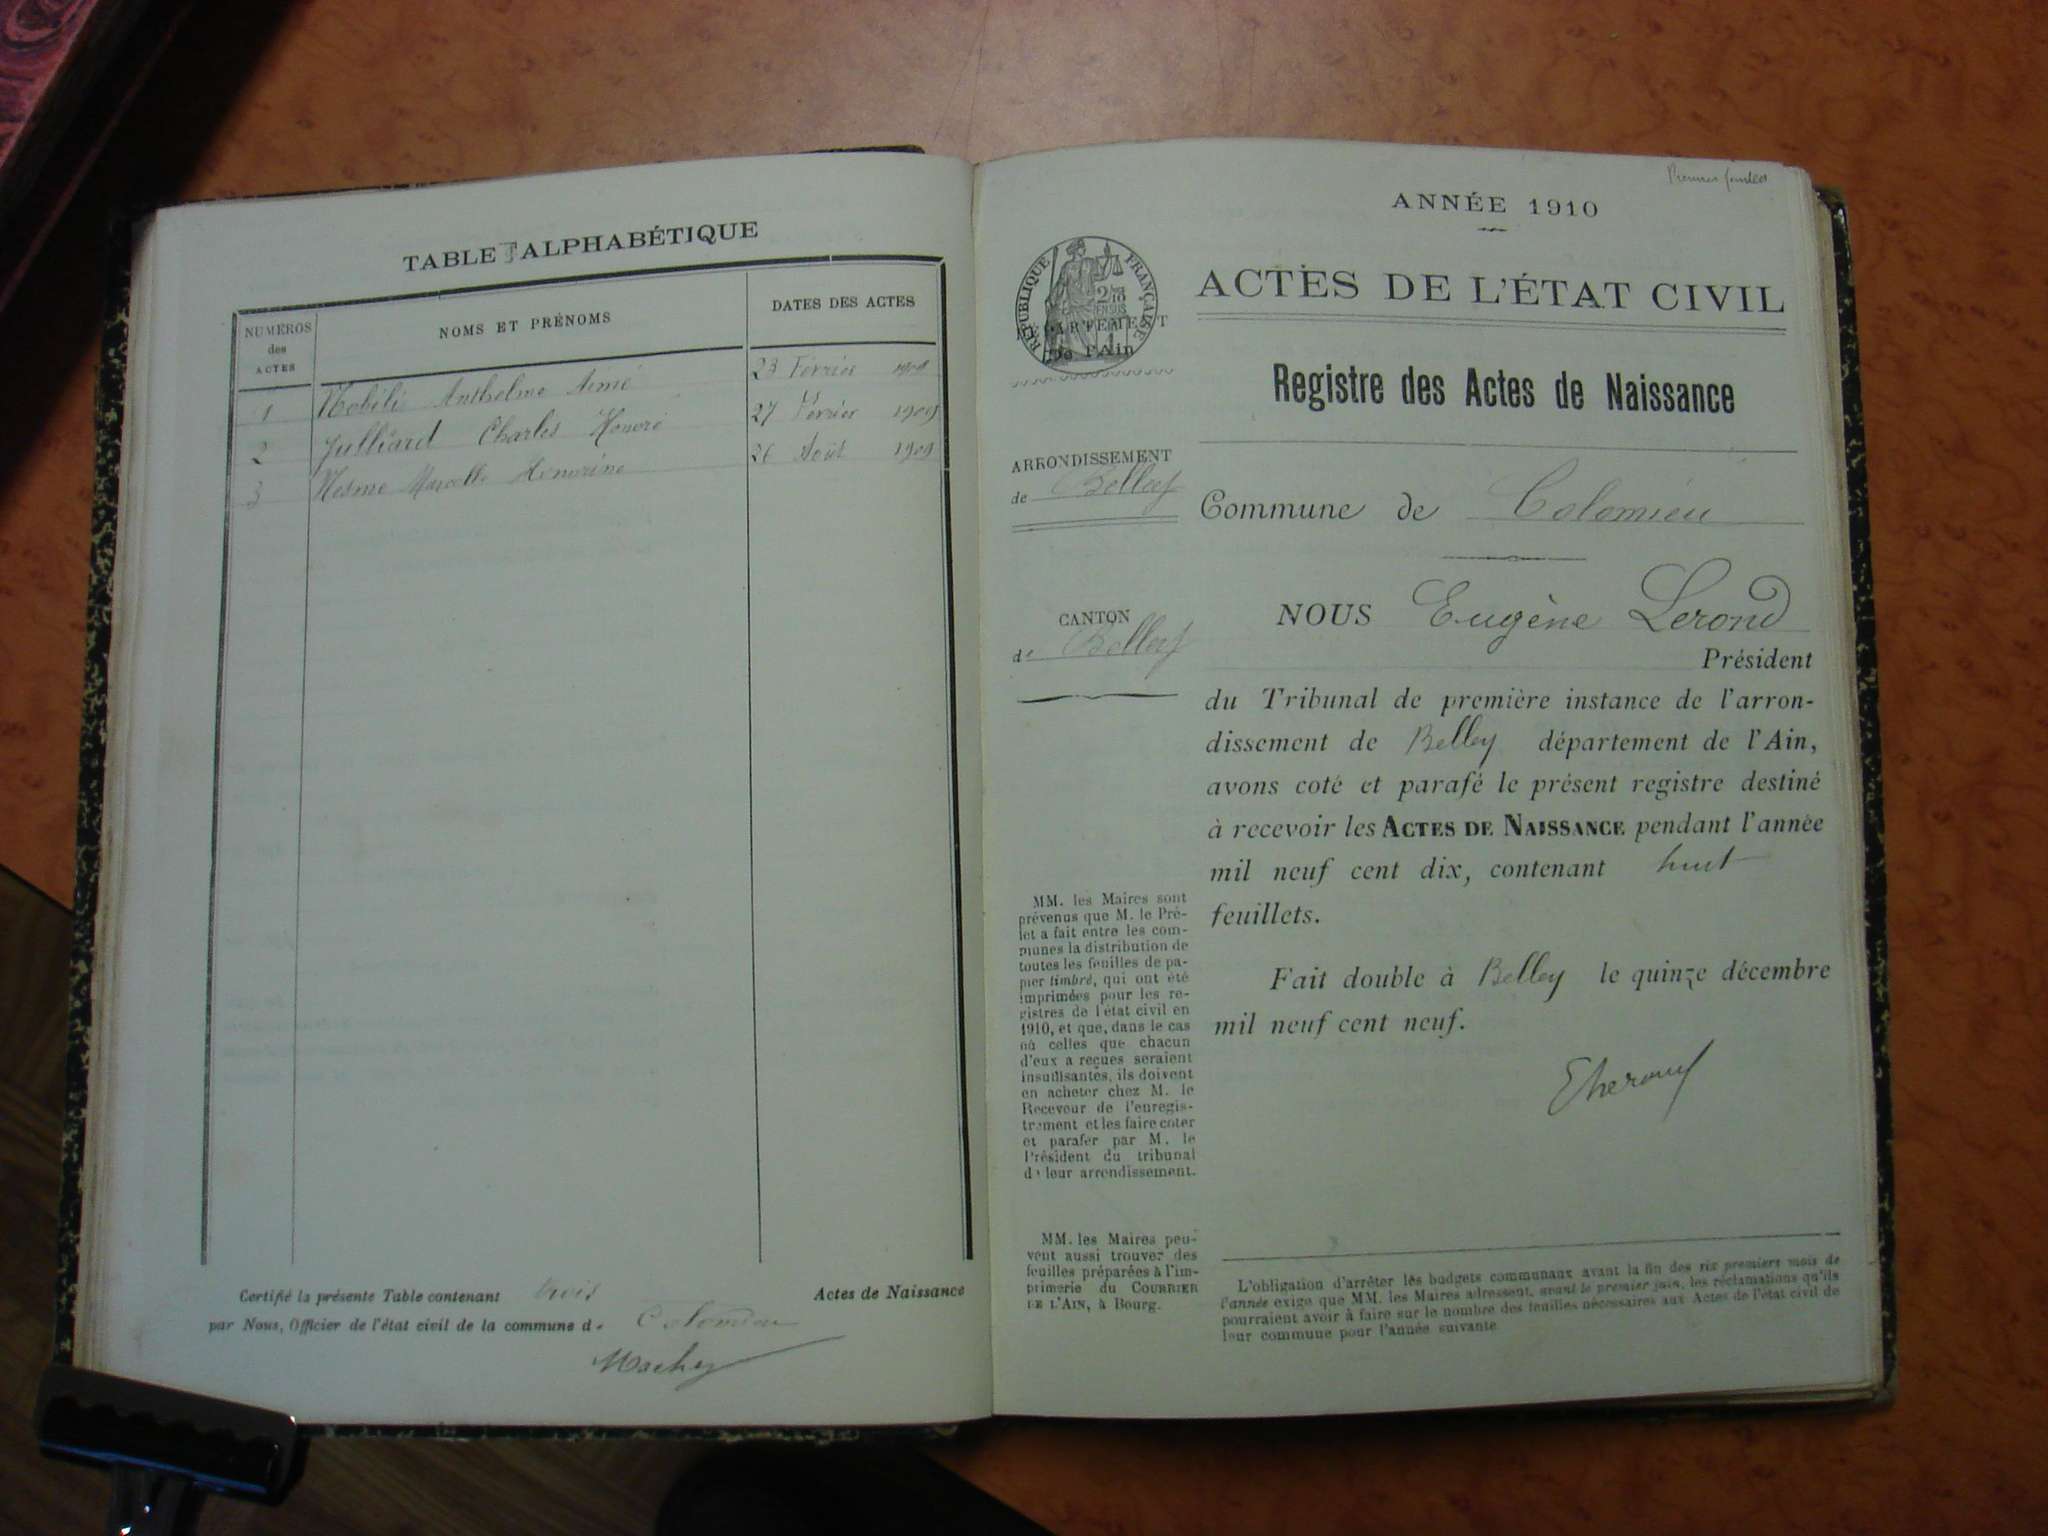 TABLE ALPHABÉTIQUE
NUMÉROS
des
ACTES
NOMS ET PRÉNOMS
DATES DES ACTES
1 Anthelme Aimé 23 Février
2 Julliard Charles Honoré 27 Février 1909
3 Marcelle Honorine 26 Août 1909
Certifié la présente Table contenant trois Actes de Naissance
par Nous, Officier de l'état civil de la commune de Colomieu
Machy
Premier feuillet
ANNÉE 1910
RÉPUBLIQUE FRANÇAISE
DÉPARTEMENT
de l'Ain
ACTES DE L'ÉTAT CIVIL
Registre des Actes de Naissance
ARRONDISSEMENT
de Belley
Commune de Colomieu
CANTON
de Belley
NOUS Eugène Lerond
Président
du Tribunal de première instance de l'arron-
dissement de Belley département de l'Ain,
avons coté et parafé le présent registre destiné
à recevoir les ACTES DE NAISSANCE pendant l'année
mil neuf cent dix, contenant huit
feuillets.
Fait double à Belley le quinze décembre
mil neuf cent neuf.
MM. les Maires sont
prévenus que M. le Pré-
fet a fait entre les com-
munes la distribution de
toutes les feuilles de pa-
pier timbré, qui ont été
imprimées pour les re-
gistres de l'état civil en
1910, et que, dans le cas
où celles que chacun
d'eux a reçues seraient
insuffisantes, ils doivent
en acheter chez M. le
Receveur de l'enregis-
trement et les faire coter
et parafer par M. le
Président du tribunal
de leur arrondissement.
MM. les Maires peu-
vent aussi trouver des
feuilles préparées à l'im-
primerie du COURRIER
DE L'AIN, à Bourg.
L'obligation d'arrêter les budgets communaux avant la fin des six premiers mois de
l'année exige que MM. les Maires adressent, avant le premier juin, les réclamations qu'ils
pourraient avoir à faire sur le nombre des feuilles nécessaires aux Actes de l'état civil de
leur commune pour l'année suivante